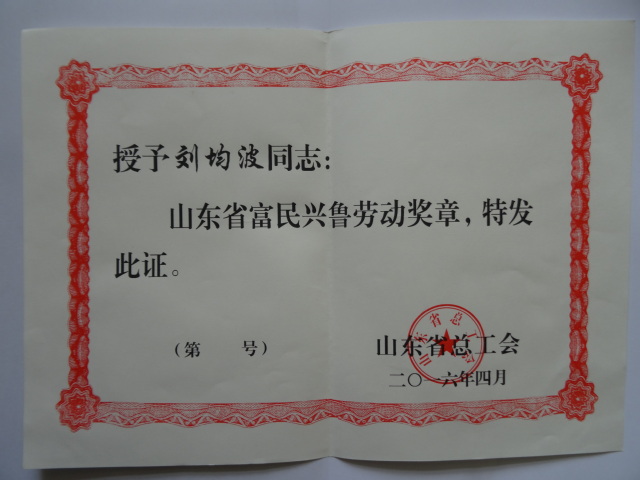 授予刘均波同志：
山东省富民兴鲁劳动奖章，特发
此证。
（第　　号）
山东省总工会
二〇一六年四月
山东省总工会